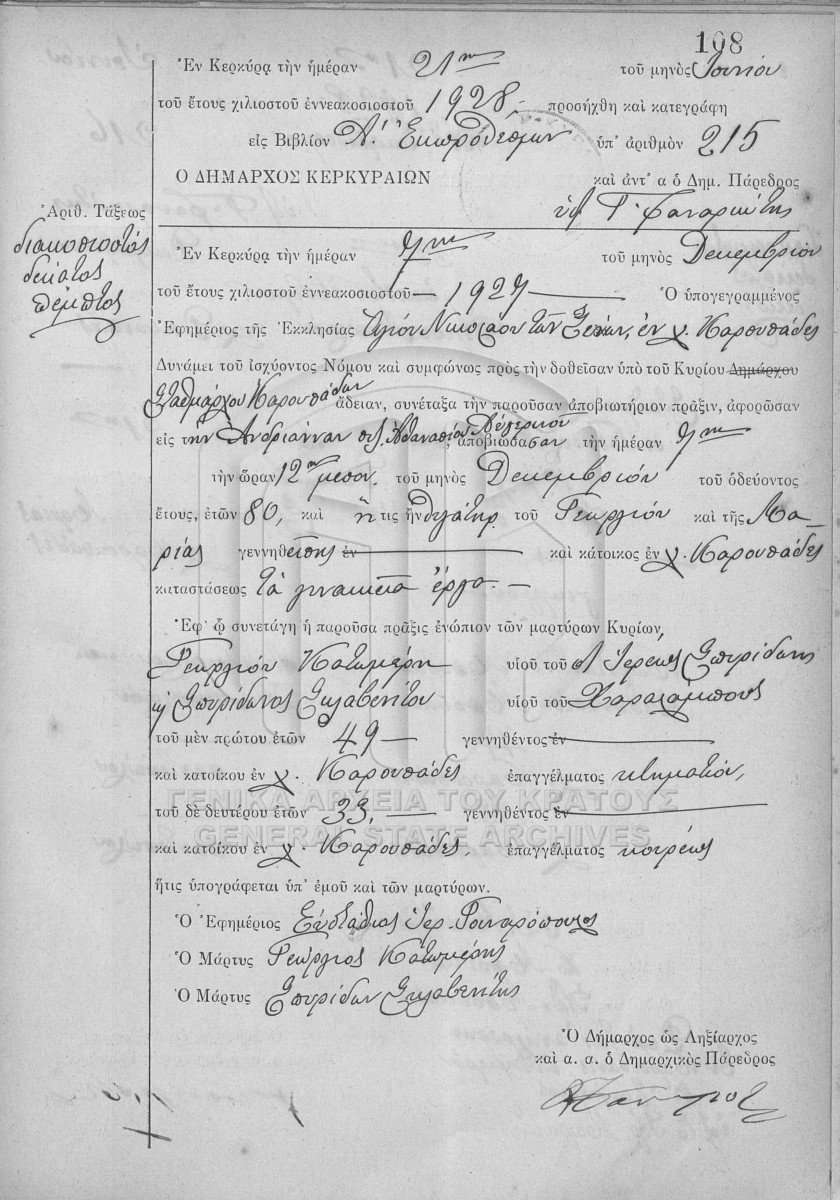 108
Ἐν Κερκύρᾳ τὴν ἡμέραν 21ην τοῦ μηνὸς Ἰουνίου
τοῦ ἔτους χιλιοστοῦ ἐννεακοσιοστοῦ 1928, προσήχθη καὶ κατεγράφη
εἰς Βιβλίον Α.' Ἐκπροθέσμων ὑπ' ἀριθμὸν 215
Ο ΔΗΜΑΡΧΟΣ ΚΕΡΚΥΡΑΙΩΝ καὶ ἀντ' α ὁ Δημ. Πάρεδρος
Γ.
Ἀριθ. Τάξεως
διακοσιοστός
δέκατος
πέμπτος
Ἐν Κερκύρᾳ τὴν ἡμέραν τοῦ μηνὸς Δεκεμβρίου
τοῦ ἔτους χιλιοστοῦ ἐννεακοσιοστοῦ — 1927 — Ὁ ὑπογεγραμμένος
Ἐφημέριος τῆς Ἐκκλησίας Ἁγίου Νικολάου τῶν Ξένων, ἐν χ. Καρουσάδες
Δυνάμει τοῦ ἰσχύοντος Νόμου καὶ συμφώνως πρὸς τὴν δοθεῖσαν ὑπὸ τοῦ Κυρίου Δημάρχου
Σταθμάρχου Καρουσάδων ἄδειαν, συνέταξα τὴν παροῦσαν ἀποβιωτήριον πρᾶξιν, ἀφορῶσαν
εἰς τὴν Ἀνδριάνναν Ἀθανασίου ἀποβιώσασαν τὴν ἡμέραν
τὴν ὥραν 12ην μεσον. τοῦ μηνὸς Δεκεμβρίου τοῦ ὁδεύοντος
ἔτους, ἐτῶν 80, καὶ ἥτις ἦν θυγάτηρ τοῦ Γεωργίου καὶ τῆς Μα-
ρίας γεννηθείσης ἐν καὶ κάτοικος ἐν χ. Καρουσάδες
καταστάσεως τὰ γυναικεῖα ἔργα. —
Ἐφ' ᾧ συνετάγη ἡ παροῦσα πρᾶξις ἐνώπιον τῶν μαρτύρων Κυρίων,
Γεωργίου Κατωμέρη υἱοῦ τοῦ Ἱερέως Σπυρίδωνος
κ Σπυρίδωνος Σκλαβενίτου υἱοῦ τοῦ Χαραλάμπους
τοῦ μὲν πρώτου ἐτῶν 49 — γεννηθέντος ἐν
καὶ κατοίκου ἐν χ. Καρουσάδες ἐπαγγέλματος κτηματίου,
τοῦ δὲ δευτέρου ἐτῶν 33, — γεννηθέντος ἐν
καὶ κατοίκου ἐν χ. Καρουσάδες, ἐπαγγέλματος κουρέως
ἥτις ὑπογράφεται ὑπ' ἐμοῦ καὶ τῶν μαρτύρων.
Ὁ Ἐφημέριος Εὐστάθιος Ἱερ.
Ὁ Μάρτυς Γεώργιος Κατωμέρης
Ὁ Μάρτυς Σπυρίδων Σκλαβενίτης
Ὁ Δήμαρχος ὡς Ληξίαρχος
καὶ α. α. ὁ Δημαρχικὸς Πάρεδρος
ΓΕΝΙΚΑ ΑΡΧΕΙΑ ΤΟΥ ΚΡΑΤΟΥΣ
GENERAL STATE ARCHIVES